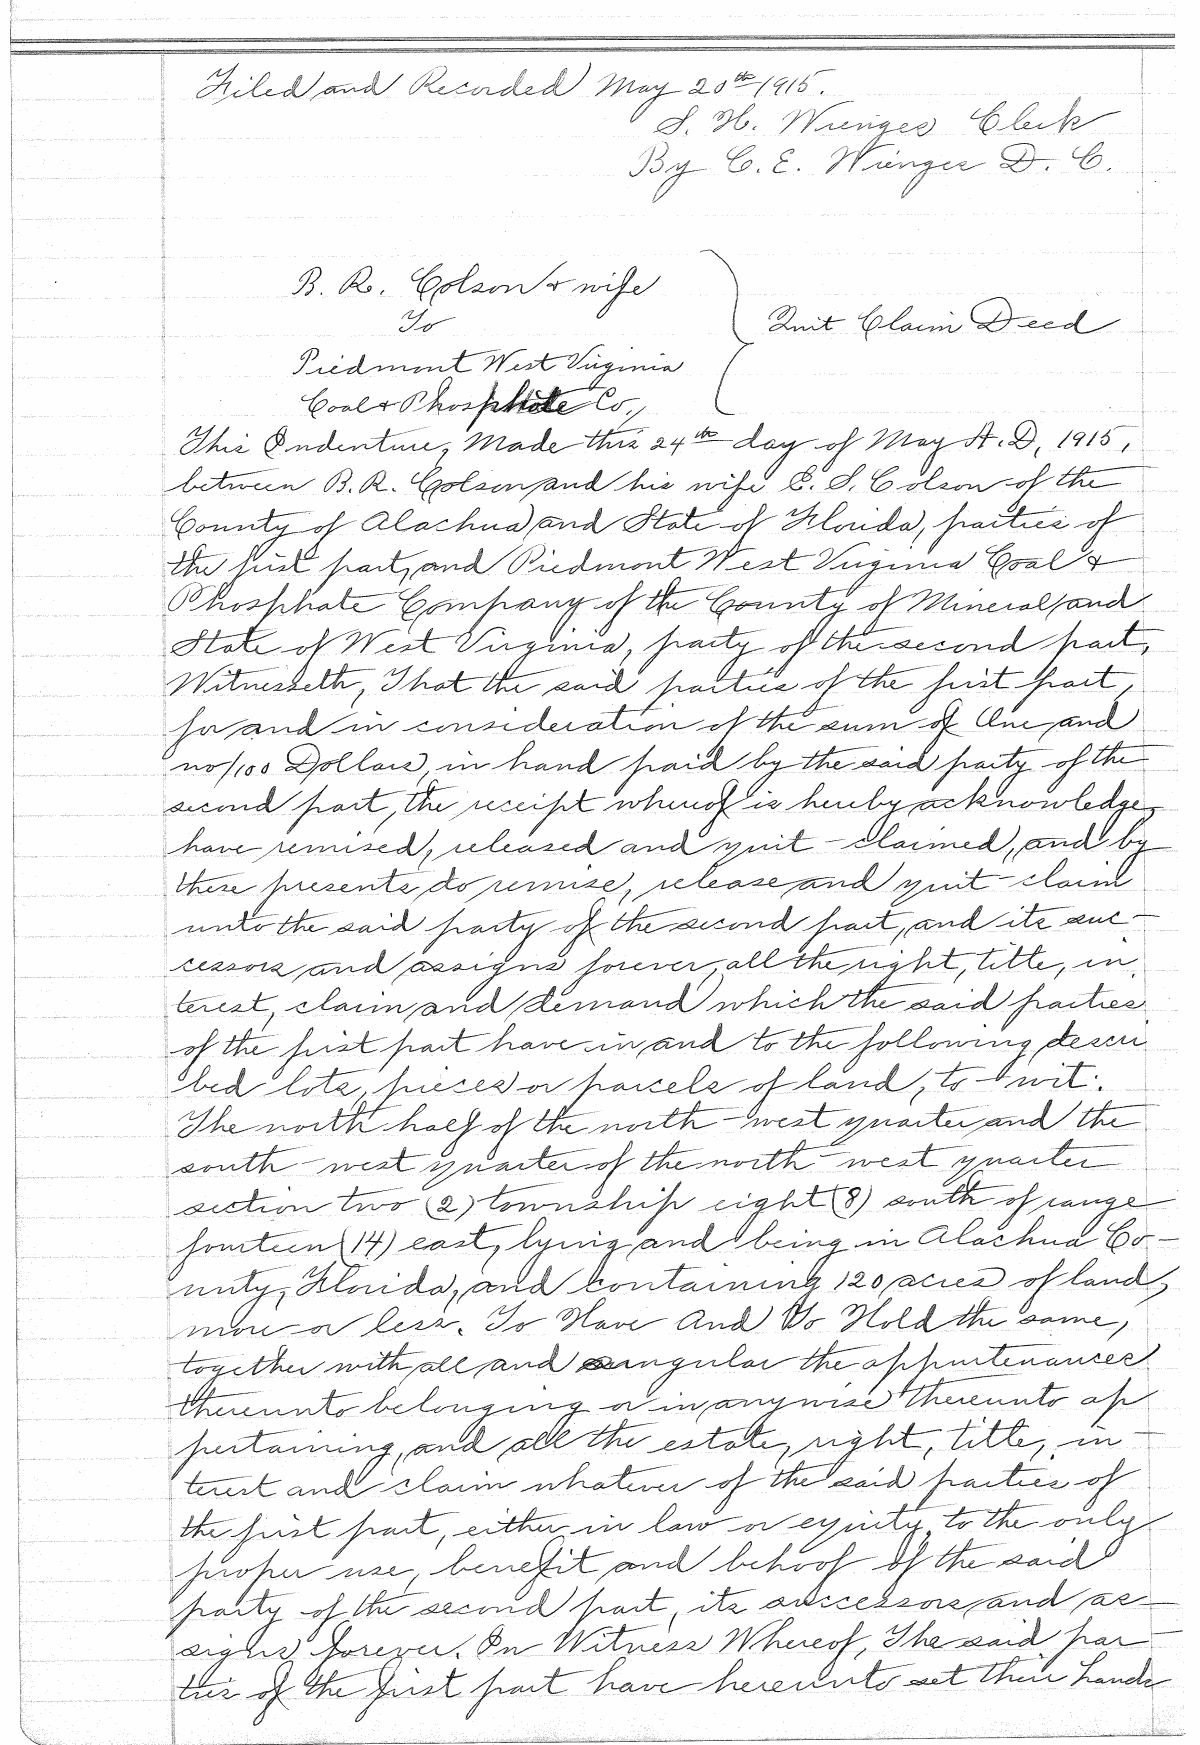 Filed and Recorded May 20th 1915.
S. H. Wienges Clerk
By C. E. Wienges D. C.
B. R. Colson & wife
To
Quit Claim Deed
Piedmont West Virginia
Coal & Phosphate Co.,
This Indenture, Made this 24th day of May A. D, 1915,
between B. R. Colson and his wife E. S. Colson of the
County of Alachua and State of Florida, parties of
the first part, and Piedmont West Virginia Coal &
Phosphate Company of the County of Mineral and
State of West Virginia, party of the second part,
Witnesseth, That the said parties of the first part,
for and in consideration of the sum of One and
no/100 Dollars, in hand paid by the said party of the
second part, the receipt whereof is hereby acknowledge,
have remised, released and quit-claimed, and by
these presents do remise, release and quit-claim
unto the said party of the second part, and its suc-
cessors and assigns forever, all the right, title, in
terest, claim and demand which the said parties
of the first part have in and to the following descri
bed lots, pieces or parcels of land, to-wit:
The north half of the north-west quarter and the
south-west quarter of the north-west quarter
section two (2) township eight (8) south of range
fourteen (14) east, lying and being in Alachua Co-
unty, Florida, and containing 120 acres of land,
more or less. To Have And To Hold the same,
together with all and singular the appurtenances
thereunto belonging or in anywise thereunto ap
pertaining, and all the estate, right, title, in-
terest and claim whatever of the said parties of
the first part, either in law or equity, to the only
proper use, benefit and behoof of the said
party of the second part, its successors and as-
signs forever. In Witness Whereof, The said par-
ties of the first part have hereunto set their hands